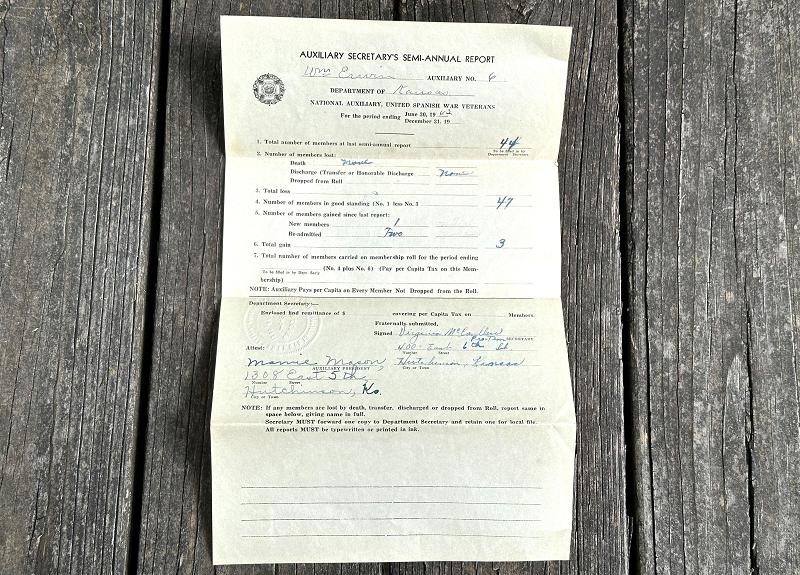 AUXILIARY SECRETARY'S SEMI-ANNUAL REPORT
Wm Erwin AUXILIARY NO. 6
DEPARTMENT OF Kansas
NATIONAL AUXILIARY, UNITED SPANISH WAR VETERANS
For the period ending June 30, 19
December 31, 19
1. Total number of members at last semi-annual report 44
To be filled in by
Department Secretary
2. Number of members lost:
Death None
Discharge (Transfer or Honorable Discharge None
Dropped from Roll
3. Total loss
4. Number of members in good standing (No. 1 less No. 3 47
5. Number of members gained since last report:
New members 1
Re-admitted Two
6. Total gain 3
7. Total number of members carried on membership roll for the period ending
(No. 4 plus No. 6) (Pay per Capita Tax on this Mem-
To be filled in by Dept. Secty
bership)
NOTE: Auxiliary Pays per Capita on Every Member Not Dropped from the Roll.
Department Secretary:—
Enclosed find remittance of $ covering per Capita Tax on Members.
Fraternally submitted,
Signed Virginia
Pro-Tem SECRETARY
400 East 6th St
Number Street
Attest:
Mamie Mason, Hutchinson, Kansas
AUXILIARY PRESIDENT City or Town
1308 East 5th,
Number Street
Hutchinson, Ks.
City or Town
NOTE: If any members are lost by death, transfer, discharged or dropped from Roll, report same in
space below, giving name in full.
Secretary MUST forward one copy to Department Secretary and retain one for local file.
All reports MUST be typewritten or printed in ink.